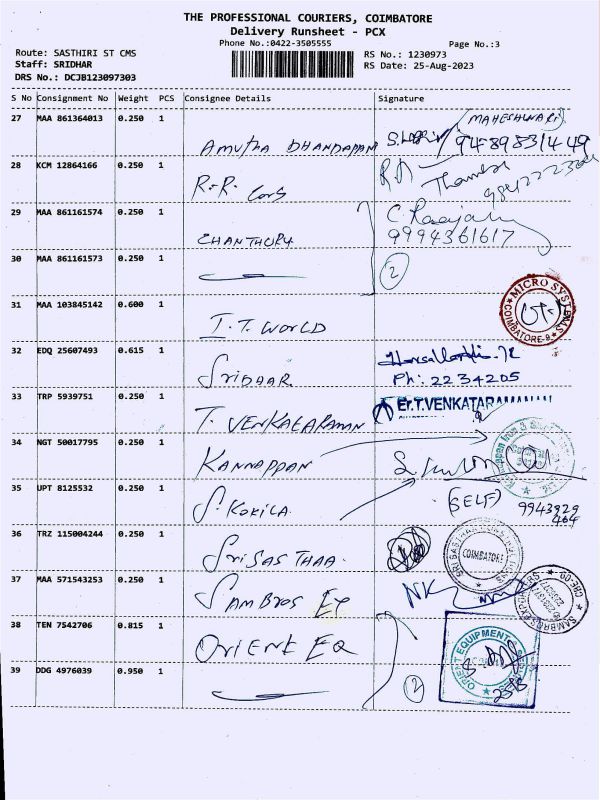 THE PROFESSIONAL COURIERS, COIMBATORE
Delivery Runsheet - PCX
Phone No.:0422-3505555
Page No.:3
Route: SASTHIRI ST CMS
Staff: SRIDHAR
DRS No.: DCJB123097303
RS No.: 1230973
RS Date: 25-Aug-2023
S No Consignment No Weight PCS Consignee Details Signature
27 MAA 861364013 0.250 1 AMUTHA DHANDAPAN
MAHESHWARI
9489831449
28 KCM 12864166 0.250 1 R.R. Cors
29 MAA 861161574 0.250 1 CHANTHURU
9994361617
30 MAA 861161573 0.250 1 2
31 MAA 103845142 0.600 1 I.T. WORLD
MICRO SYSTEMS COIMBATORE-9
32 EDQ 25607493 0.615 1 SRIDAAR
Ph: 2234205
33 TRP 5939751 0.250 1 T. VENKATARAMAN Er.T.VENKATARAMANAN
34 NGT 50017795 0.250 1 KANNAPPAN
35 UPT 8125532 0.250 1 S. KOKILA (SELF) 9943929
464
36 TRZ 115004244 0.250 1 SRI SASTHAA COIMBATORE
37 MAA 571543253 0.250 1 SAMBROS EX NK
SAMBROS EXPORTERS
38 TEN 7542706 0.815 1 ORIENT EQ
ORIENT EQUIPMENTS
39 DDG 4976039 0.950 1 2 25/8